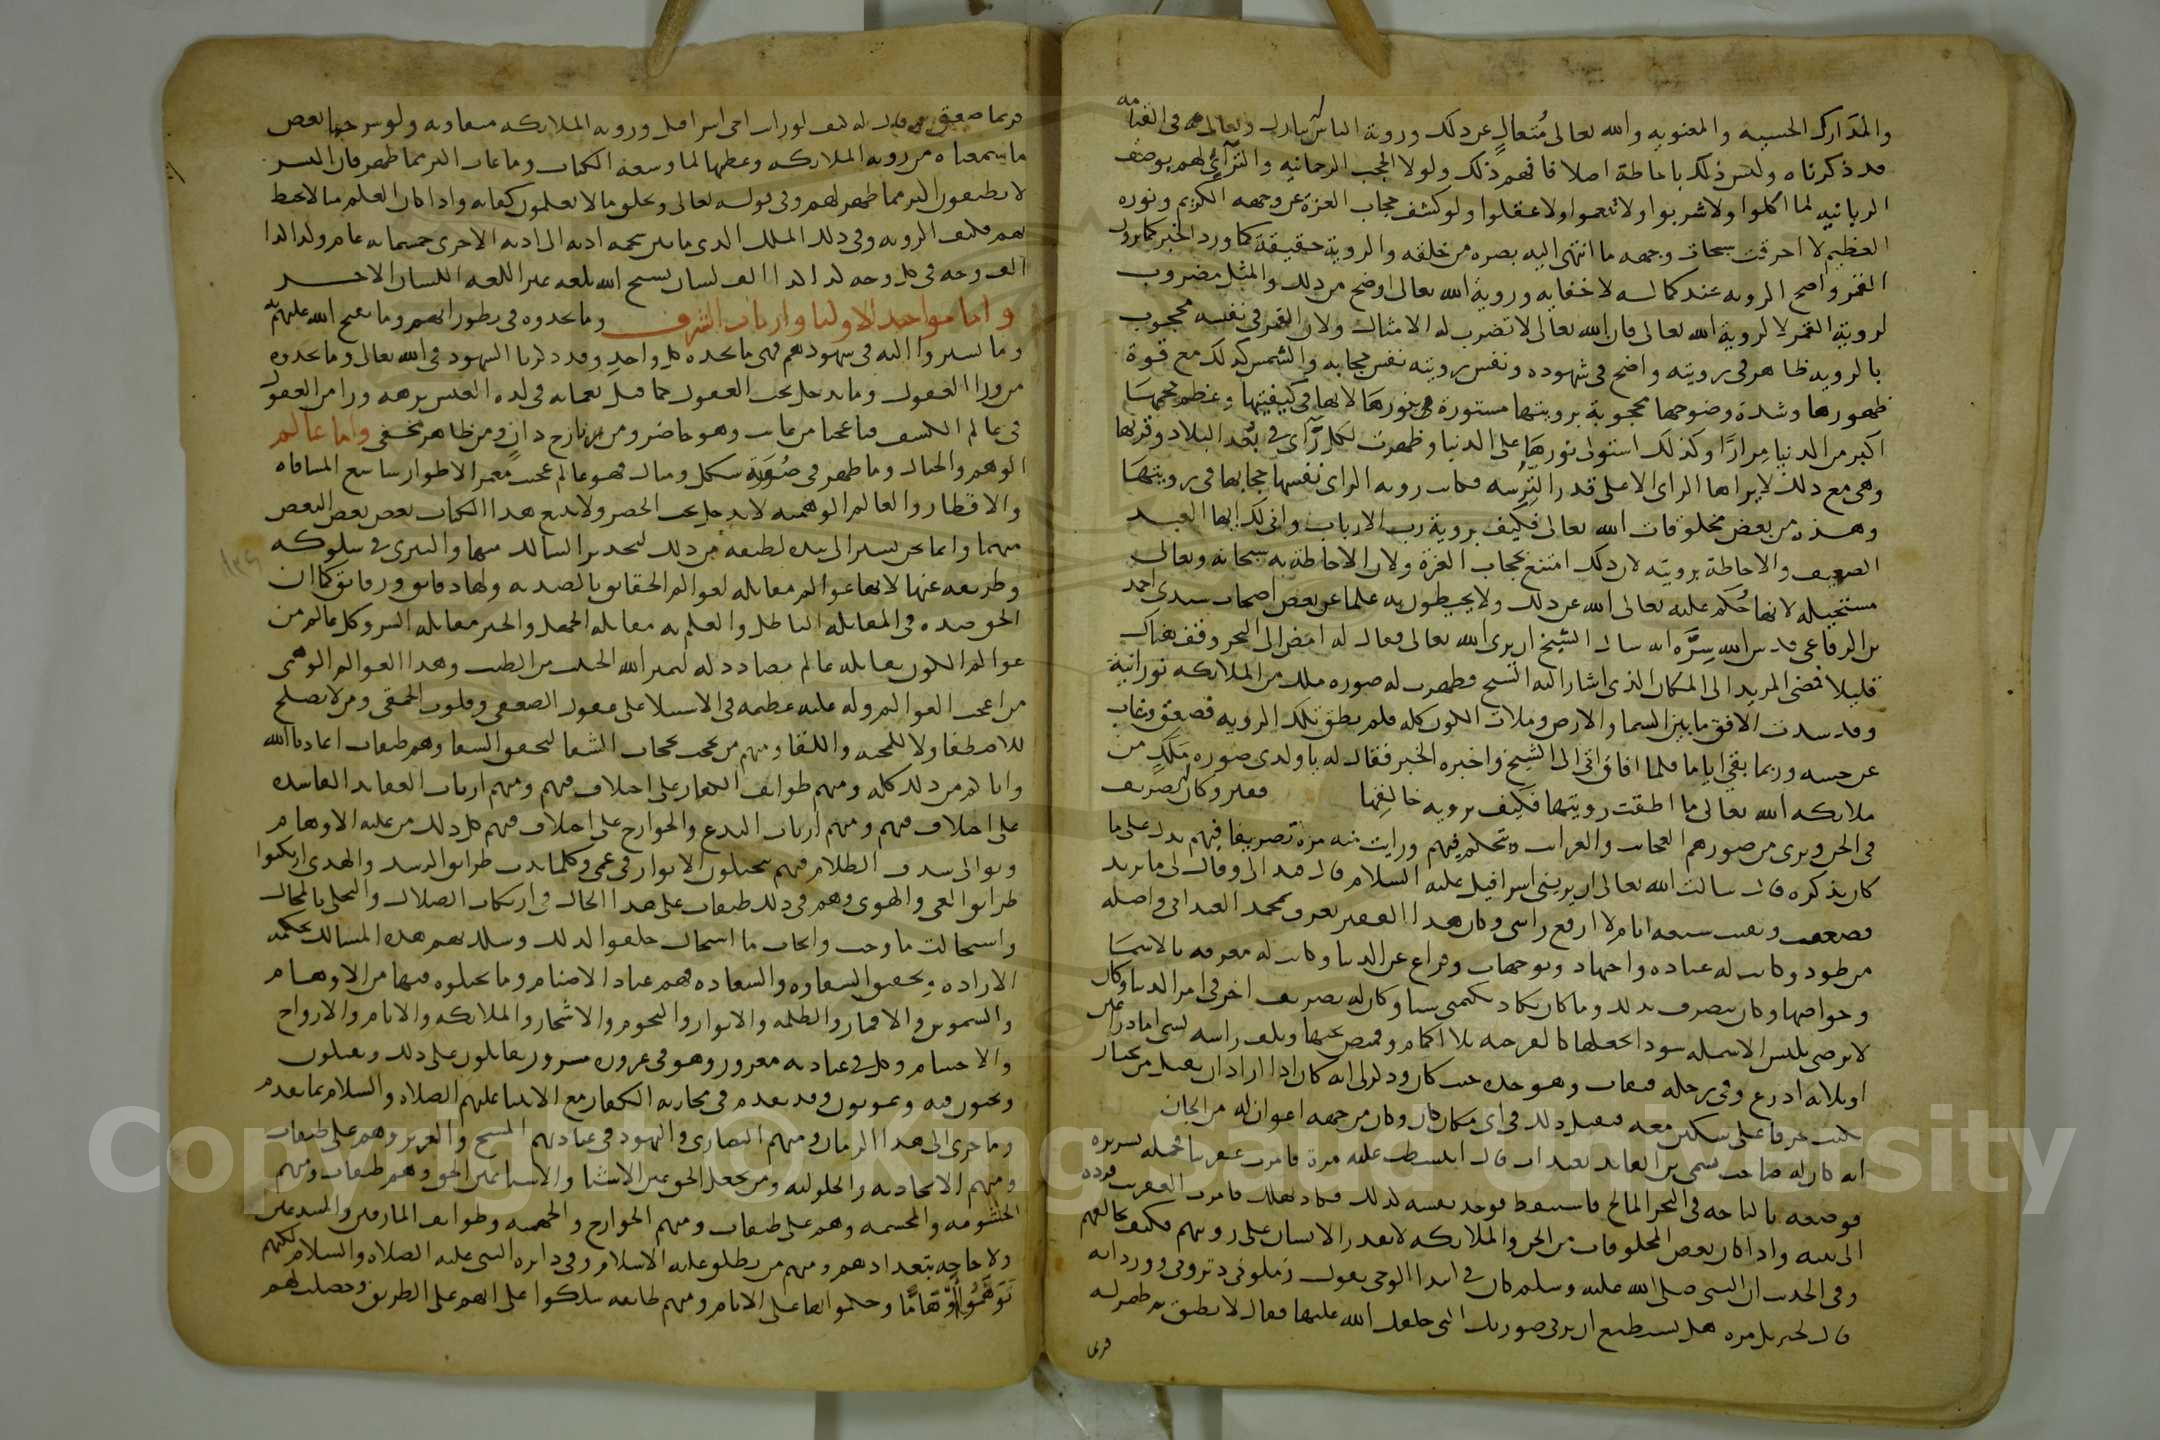 والمدارك الحسيه والمعنويه والله تعالى مُتعالٍ عن ذلك وروية الناس تبارك وتعالى في القيامه
قد ذكرناه وليس ذلك باحاطة اصلا فافهم ذلك ولولا الحجب الرحمانيه والترآئي لهم بوصف
الربانيه لما اكلوا ولا شربوا ولا تنعموا ولا عقلوا ولو كشف حجاب العزة عن وجهه الكريم ونوره
العظيم لاحرقت سبحات وجهه ما انتهى اليه بصره من خلقه والروية حقيقة كما ورد الخبر كما يرون
القمر واضح الرويه عند كماله لا خفا به وروية الله تعالى اوضح من ذلك والمثل مضروب
لروية القمر لا لروية الله تعالى فان الله تعالى لا تضرب له الامثال ولان القمر في نفسه محجوب
بالرويه ظاهر في رويته واضح في شهوده ونفس رويته نفس حجابه والشمس كذلك مع قوة
ظهورها وشدة وضوحها محجوبة برويتها مستورة في نورها لانها في كيفيتها وعظم حجمها
اكبر من الدنيا مرارًا وكذلك استولى نورها على الدنيا وظهرت لكل رآى في بُعد البلاد وقربها
وهي مع ذلك لا يراها الراى الا على قدر الترسه فكانت رويه الراى نفسها حجابها في رويتها
وهذه من بعض مخلوقات الله تعالى فكيف بروية رب الارباب وانى لك ايها العبد
الضعيف والاحاطة برويته لان ذلك امتنع بحجاب العزة ولان الاحاطة به سبحانه وتعالى
مستحيله لانها حُكم عليه تعالى الله عن ذلك ولا يحيطون به علما عن بعض اصحاب سيدى احمد
بن الرفاعى قدس الله سِرَّه انه سال الشيخ ان يرى الله تعالى فقال له امض الى البحر وقف هناك
قليلا فمضى المريد الى المكان الذى اشار اليه الشيخ فظهرت له صوره ملك من الملايكه نورانية
وقد سدت الافق ما بين السما والارض وملات الكون كله فلم يطق تلك الرويه فصعق وغاب
عن حسه وربما بقى اياما فلما افاق اتى الى الشيخ واخبره الخبر فقال له يا ولدى صوره مَلَكٍ من
ملايكه الله تعالى ما اطقت رويتها فكيف برويه خالقها فقير وكان له تصريف
في الجن ويرى من صورهم العجايب والغرايب ويتحكم فيهم ورايت منه مرة تصريفا فيهم يدل على ما
كان يذكره قال سالت الله تعالى ان يرينى اسرافيل عليه السلام قال فبدا لى وقال لى ما تريد
فصعقت وبقيت سبعه ايام لا ارفع راسى وكان هذا الفقير يعرف بمحمد واصله
من طود وكانت له عباده واجتهاد وتوجهات وفراغ عن الدنيا وكانت له معرفه بالاسما
وخواصها وكان يتصرف بذلك وما كان يكاد يكتمنى شيا وكان له تصريف اخر في امر الدنيا وكان
لا يرضى بلبس الا شمله سودا يجعلها كالفرجيه بلا اكمام وقميص تحتها ويلف راسه بشى اما ذراعين
او ثلاثه اذرع وفى رجله قبقاب وهو وحده حيث كان وذكر لى انه كان اذا اراد ان يقتل من يختار
يكتب حرفا على سكين معه فيقتل ذلك في اى مكان كان وكان من جهه اعوان له من الجان
انه كان له صاحب يسمى بن قال انبسطت عليه مره فامرت عفريتا فحمله بسريره
فوضعه بالناحه في البحر المالح فاستيقظ فوجد نفسه لذلك فكاد يهلك فامرت العفريت فرده
الى بيته واذا كان بعض المخلوقات من الجن والملايكه لا يقدر الانسان على رويتهم فكيف بخالقهم
وفى الحديث ان النبى صلى الله عليه وسلم كان في ابتدا الوحى يقول زملونى دثرونى وورد انه
قال لجبريل مره هل تستطيع ان ارى في صورتك التى خلقك الله عليها فقال لا تطيق ثم ظهر له
فربما صعق ثم قال له كيف لو رايت اخى اسرافيل ورويه الملايكه متفاوته ولو شرحنا بعض
ما سمعناه من رويه الملايكه وعظمها لما وسعه الكتاب وما غاب اكثر مما ظهر فان البشر
لا يطيقون اكثر مما ظهر لهم وفى قوله تعالى ويخلق ما لا تعلمون كفايه واذا كان العلم ما لا يحيط
بهم فكيف الرويه وفى ذلك الملك الذى ما بين شحمه اذنه الى اذنه الاخرى خمسمايه عام وله كذا
الف وجه في كل وجه كذا كذا الف لسان يسبح الله بلغه غير اللغه اللسان الاخر
واما مواجيد الاوليا وارباب الشرف وما يجدوه في تطوراتهم وما يفتح الله عليهم به
وما يسيروا اليه في شهودهم فهى ما يجده كل واحد وقد ذكرنا الشهود في الله تعالى وما يجدوه
من ورا العقول وما يدخل تحت العقول
في عالم الكشف فيا عجبا من غايب وهو حاضر ومن نازح دانٍ ومن ظاهر مختفى واما عالم
الوهم والخيال وما ظهر في صُورة شكل ومثال فهو عالم عجيب الاطوار شاسع المسافات
والاقطار والعالم الوهميه لا يدخل تحت الحصر ولا يسع هذا الكتاب بعض بعض البعض
منهما وانما نحن نشير الى نبذه لطيفه من ذلك ليحذر السالك منها والتبرى في سلوكه
وطريقه عنها لانها عوالم مقابله لعوالم الحقايق بالضديه ولها دقايق ورقايق كما ان
الحق ضده في المقابله الباطل والعلم به مقابله الجهل والخير مقابله الشر وكل عالم من
عوالم الكون يقابله عالم يضادده ليميز الله الخبيث من الطيب وهذا العوالم الوهمى
من اعجب العوالم وله غلبه عظيمه في الاستيلا على عقول الضعفى وقلوب الحمقى ومن لا يصلح
للاصطفا ولا للمحبه واللقا ومنهم من حجب بحجاب الشقا ليحقق الشقا وهم طبقات اعاذنا الله
واياكم من ذلك كله ومنهم طوايف الكفار على اختلافهم ومنهم ارباب العقايد الفاسده
على اختلافهم ومنهم ارباب البدع والخوارج على اختلافهم كل ذلك من غلبه الاوهام
وتوالى سدف الظلام فهم يتخيلون الانوار في عمى وكلما بدت طرايق الرشد والهدى ارتكبوا
طرايق الغى والهوى وهم في ذلك طبقات على هذا الحال في ارتكاب الضلال والتحلى بالمحال
واستحالت ما وجب وايجاب ما استحال خلقوا لذلك وسلك بهم هذه المسالك بحكمه
الاراده وتحقيق الشقاوه والسعاده فهم عباد الاصنام وما تخيلوه فيها من الاوهام
والشموس والاقمار والظلمه والانوار والنجوم والاشجار والملايكه والانام والارواح
والاجسام وكل في عبادته مغرور وهو في غروره مسرور يقاتلون على ذلك ويقتلون
ويحيون فيه ويموتون وقد تقدم في محاربه الكفار مع الانبيا عليهم الصلاه والسلام بما تقدم
وما جرى الى هذا الزمان ومنهم النصارى واليهود في عبادتهم المسيح والعزير وهم على طبقات
ومنهم الاتحاديه والحلوليه ومن يجعل الحق عين الاشيا والاشيا عين الحق وهم طبقات ومنهم
الحشويه والمجسمه وهم على طبقات ومنهم الخوارج والجهميه وطوايف المارقين والمبتدعين
ولا حاجه بتعدادهم ومنهم من يطلق عليه الاسلام وفى دايره النبى عليه الصلاه والسلام لكنهم
تَوَهَّمُوا أَوْهَامًا وحكموا بها على الانام ومنهم طايفه سلكوا على انهم على الطريق وحصلت لهم